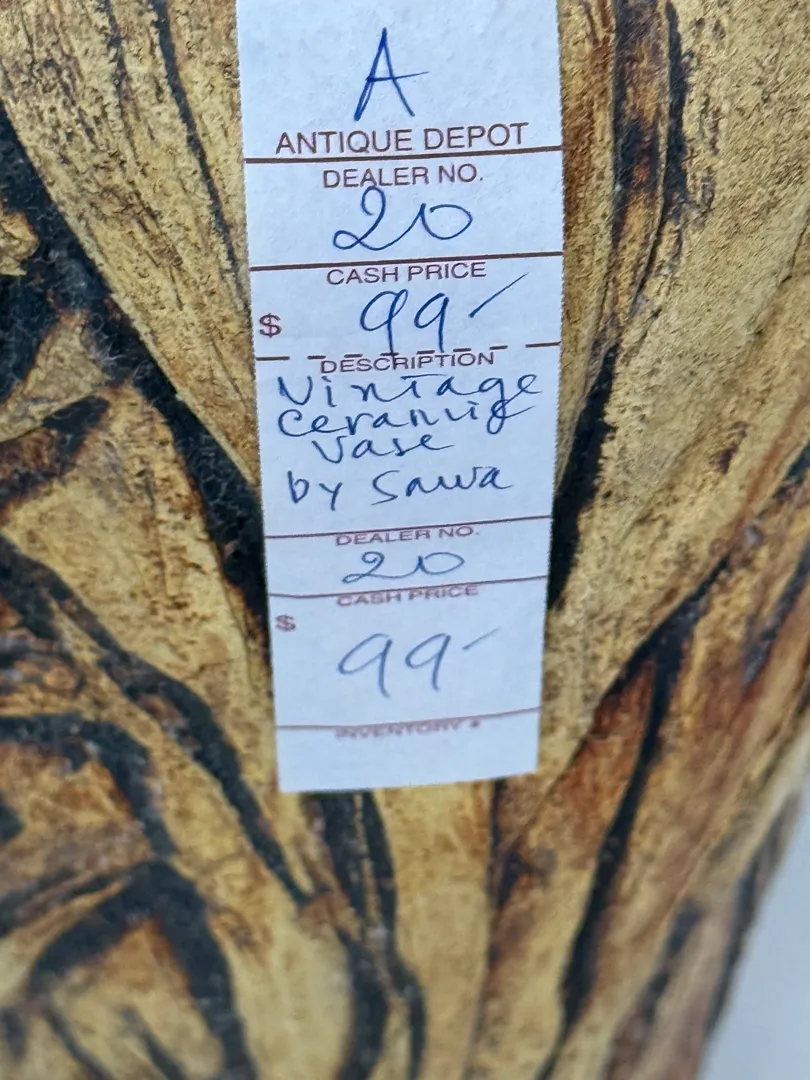 A
ANTIQUE DEPOT
DEALER NO.
20
CASH PRICE
$ 99-
DESCRIPTION
Vintage
Ceramic
Vase
by Sawa
DEALER NO.
20
CASH PRICE
$
99-
INVENTORY #